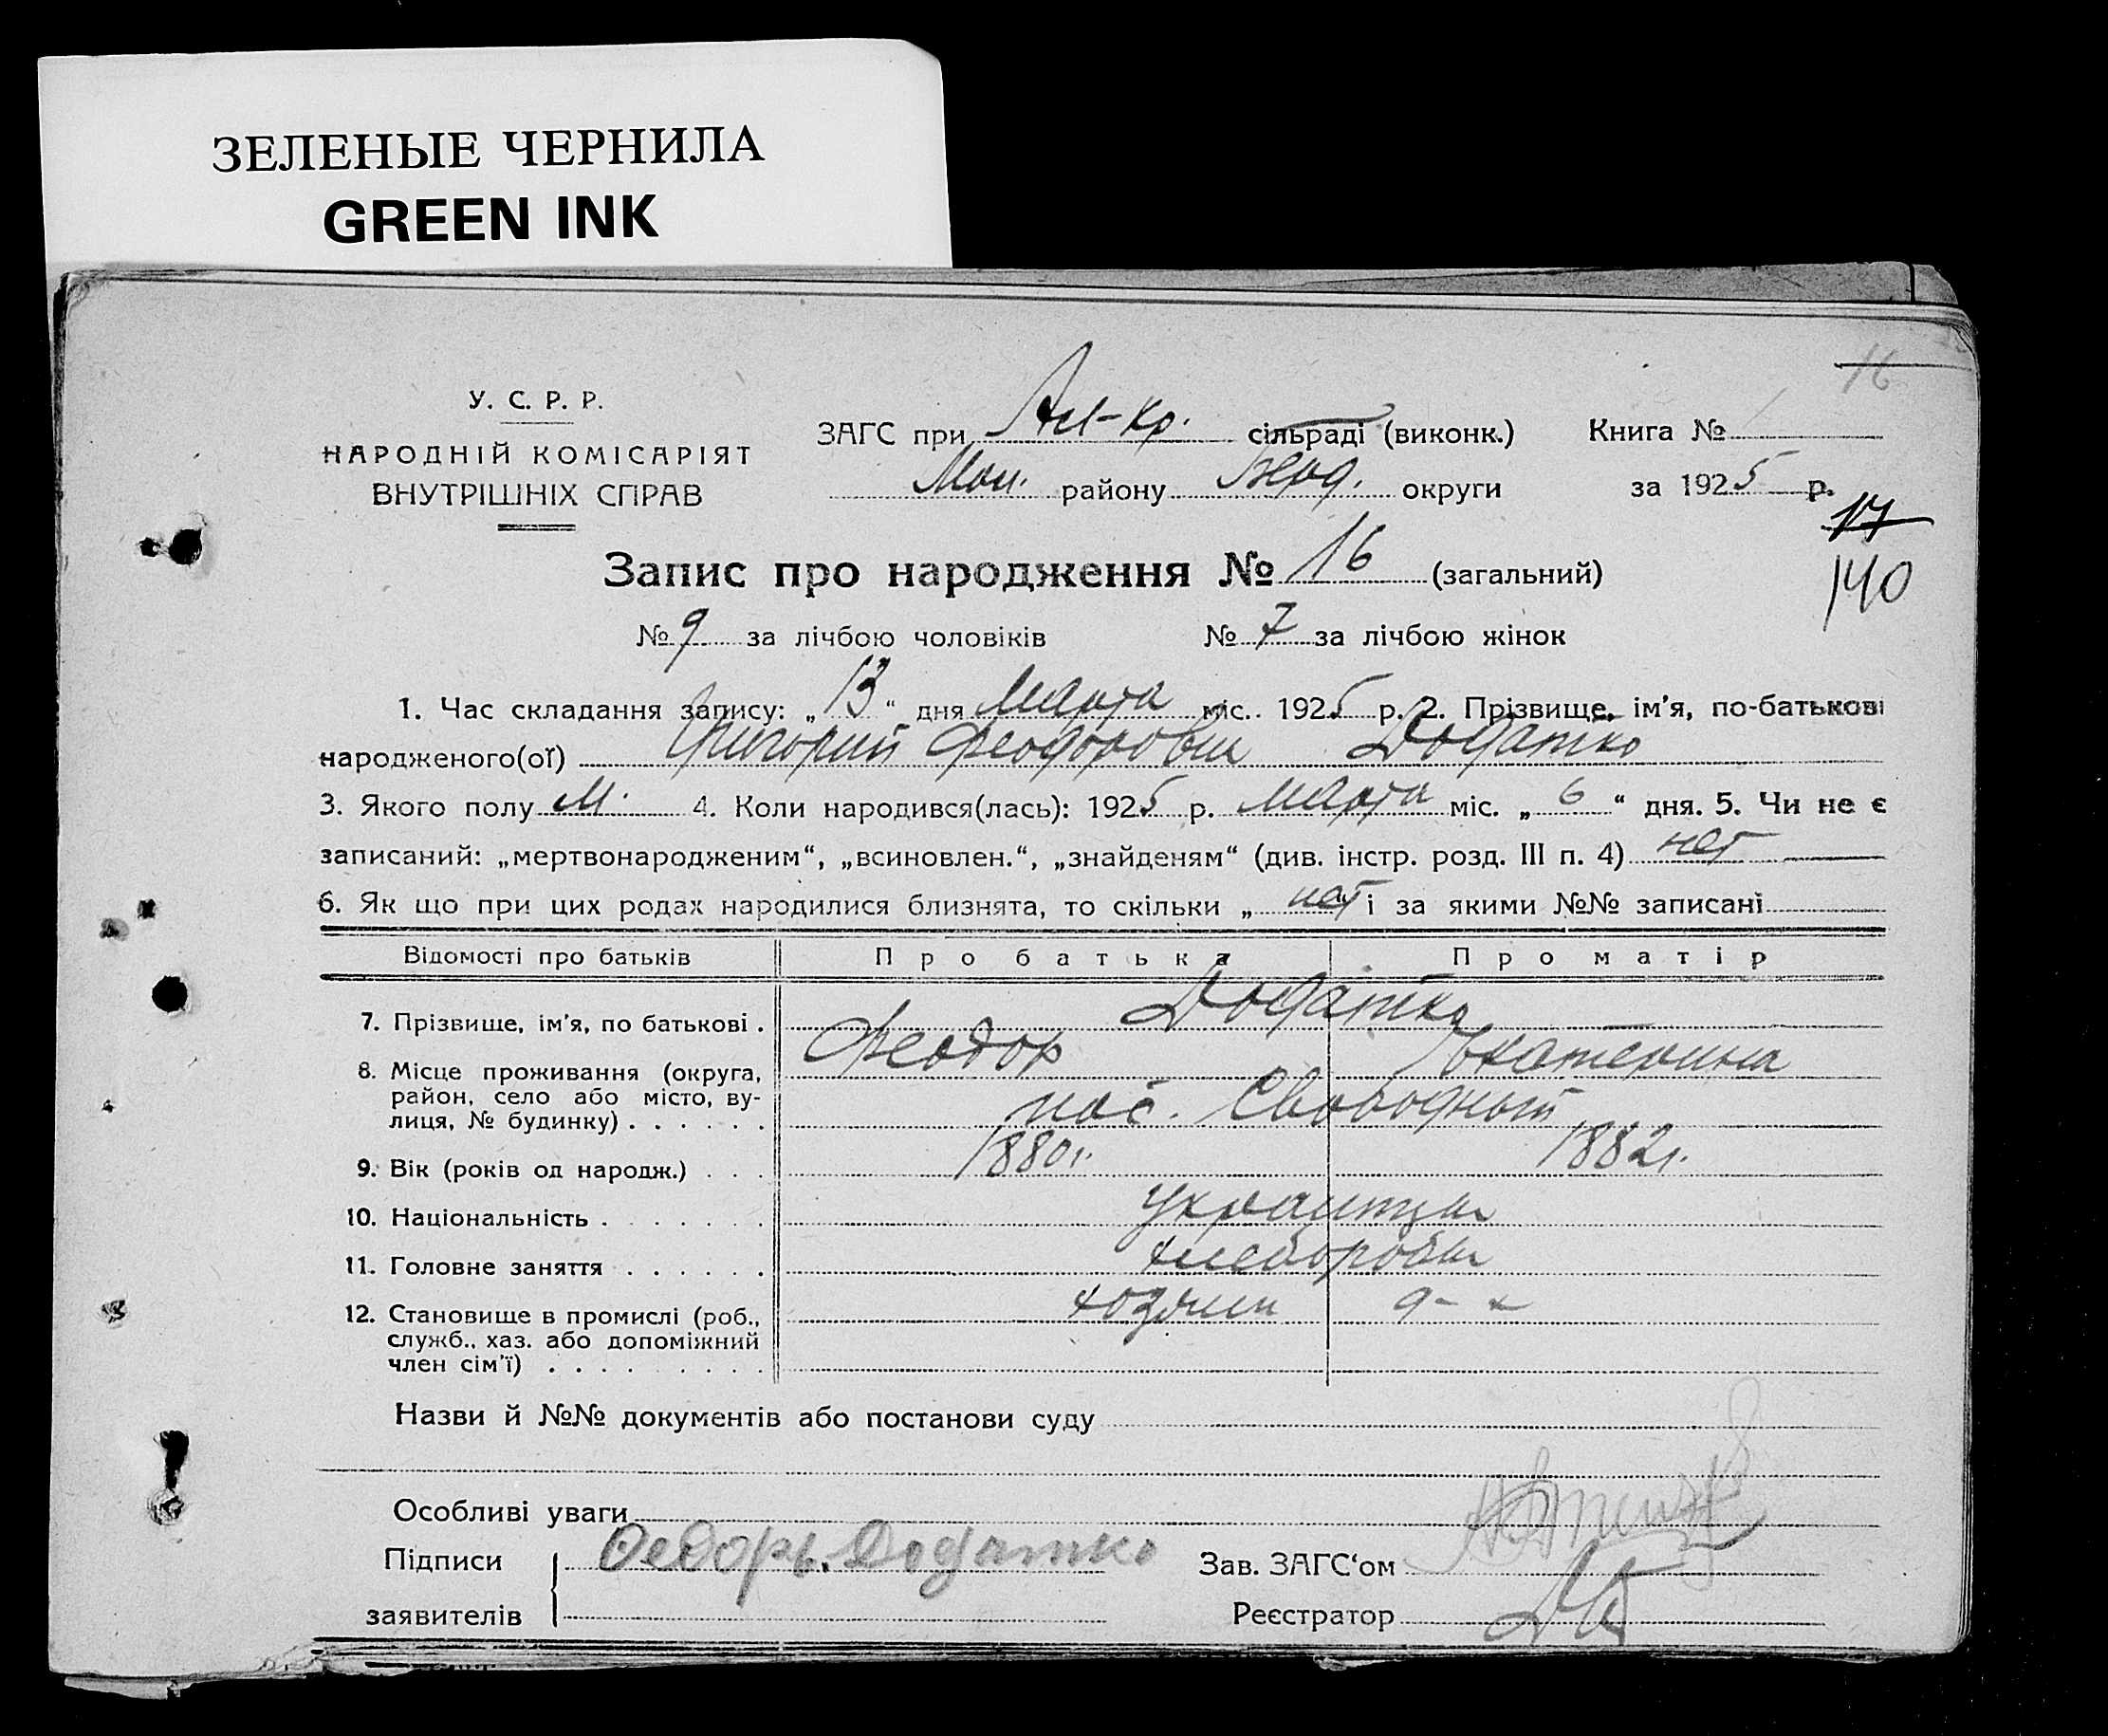 ЗЕЛЕНЫЕ ЧЕРНИЛА
GREEN INK
16
У. С. Р. Р.
НАРОДНІЙ КОМІСАРІЯТ
ВНУТРІШНІХ СПРАВ
ЗАГС при сільраді (виконк.) Книга №
району Берд. округи за 1925 р.
17
140
Запис про народження № 16 (загальний)
№ 9 за лічбою чоловіків № 7 за лічбою жінок
1. Час складання запису: „ 13 “ дня Марта міс. 1925 р. 2. Прізвище, ім'я, по-батькові
народженого(ої) Григорий Феодорович Додатко
3. Якого полу м. 4. Коли народився(лась): 1925 р. марта міс. „ 6 “ дня. 5. Чи не є
записаний: „мертвонародженим“, „всиновлен.“, „знайденям“ (див. інстр. розд. III п. 4) нет
6. Як що при цих родах народилися близнята, то скільки „ нет і за якими №№ записані
Відомості про батьків Про батька Про матір
7. Прізвище, ім'я, по батькові . Додатко
Феодор Екатерина
8. Місце проживання (округа,
район, село або місто, ву-
лиця, № будинку) . . . . . . пос. Свободный
9. Вік (років од народж.) . . . 1880г. 1882г.
10. Національність . . . . . . . украинцы
11. Головне заняття . . . . . . хлеборобы
12. Становище в промислі (роб., хозяин
служб., хаз. або допоміжний
член сім'ї) . . . . . . . . .
Назви й №№ документів або постанови суду
Особливі уваги
Підписи Федоръ. Додатко Зав. ЗАГС'ом
заявителів Реєстратор